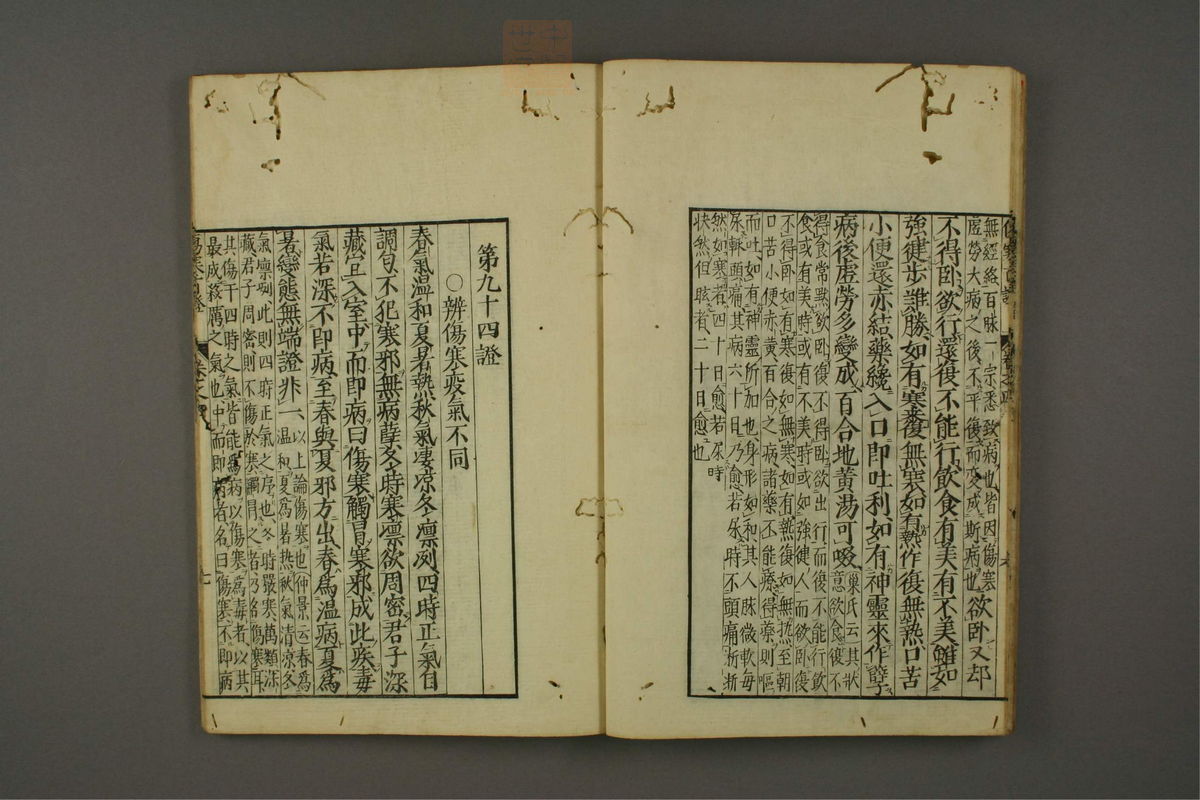 無經絡百脉一宗悉致病也皆因傷寒
虛勞大病之後不平復而變成斯病也欲卧又却
不得卧欲行還復不能行飲食有美有不美雖如
強健步誰勝如有寒來復無寒如有熱作復無熱口苦
小便還赤結藥纔入口即吐利如有神靈來作孽
病後虛勞多變成百合地黃湯可啜巢氏云其狀意欲食復不
得食常默默欲卧復不得卧欲出行而復不能行飲
食或有美時或有不美時或如強健人而欲卧復
不得卧如有寒復如無寒如有熱復如無熱至朝
口苦小便赤黃百合之病諸藥不能療得藥則嘔
而吐如有神靈所加也身形如和其人脉微軟每
尿輒頭痛其病六十日乃愈若尿時不頭痛淅淅
然如寒者四十日愈若尿時
快然但眩者二十日愈也
第九十四證
○辨傷寒疫氣不同
春氣溫和夏暑熱秋氣淒凉冬凛冽四時正氣自
調勻不犯寒邪無病孽冬時寒凛欲周密君子深
藏宜入室中而即病曰傷寒觸冒寒邪成此疾毒
氣若深不即病至春與夏邪方出春為溫病夏為
暑變態無端證非一以上論傷寒也仲景云春為溫和夏為暑熱秋氣清凉冬
氣凛冽此則四時正氣之序也冬時嚴寒萬類深
藏君子周密則不傷於寒觸冒之者乃名傷寒耳
其傷于四時之氣皆能為病以傷寒為毒者以其
最成殺厲之氣也中而即病者名曰傷寒不即病